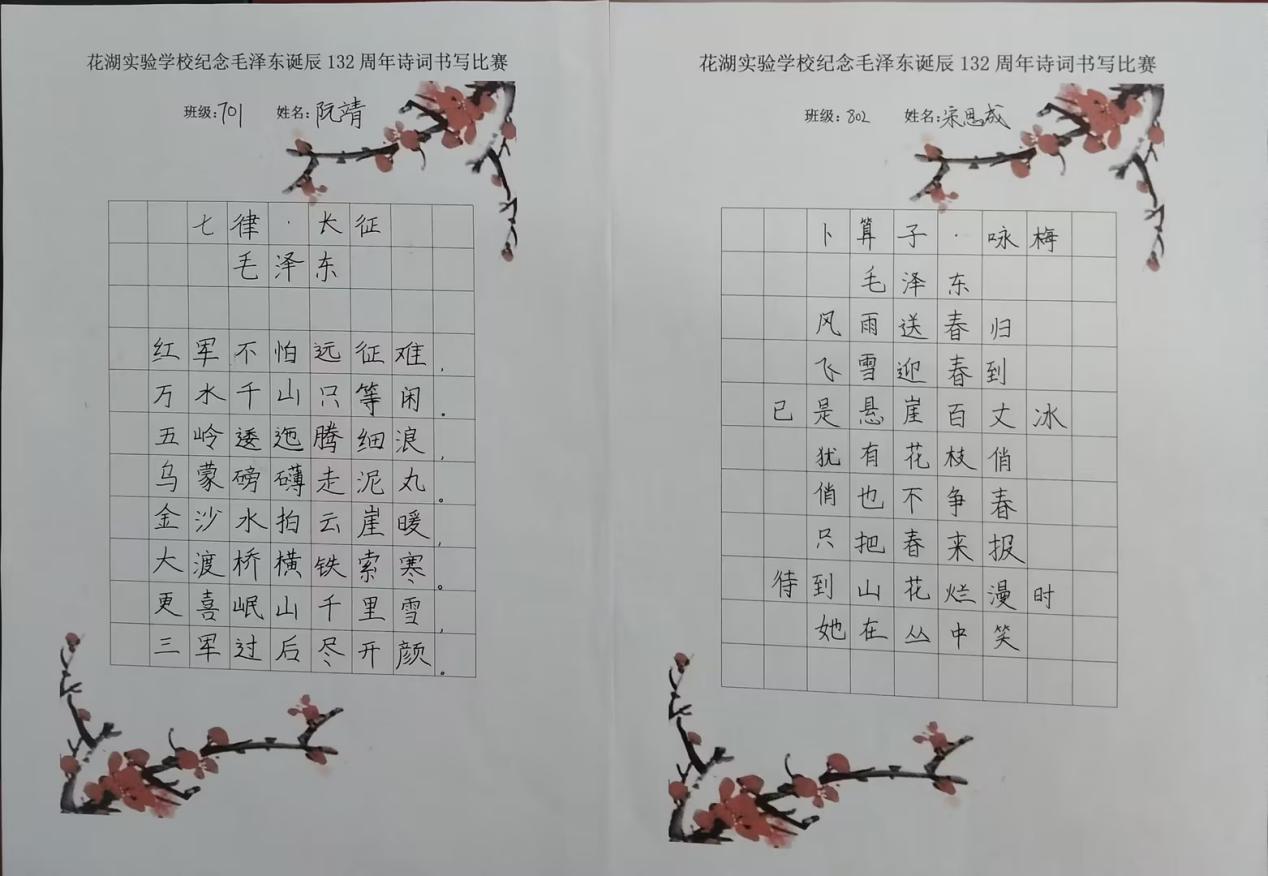 花湖实验学校纪念毛泽东诞辰 132 周年诗词书写比赛
班级:701 姓名:阮靖
七律·长征
毛泽东
红军不怕远征难,
万水千山只等闲。
五岭逶迤腾细浪,
乌蒙磅礴走泥丸。
金沙水拍云崖暖,
大渡桥横铁索寒。
更喜岷山千里雪,
三军过后尽开颜。
花湖实验学校纪念毛泽东诞辰 132 周年诗词书写比赛
班级:802 姓名:宋思成
卜算子·咏梅
毛泽东
风雨送春归
飞雪迎春到
已是悬崖百丈冰
犹有花枝俏
俏也不争春
只把春来报
待到山花烂漫时
她在丛中笑